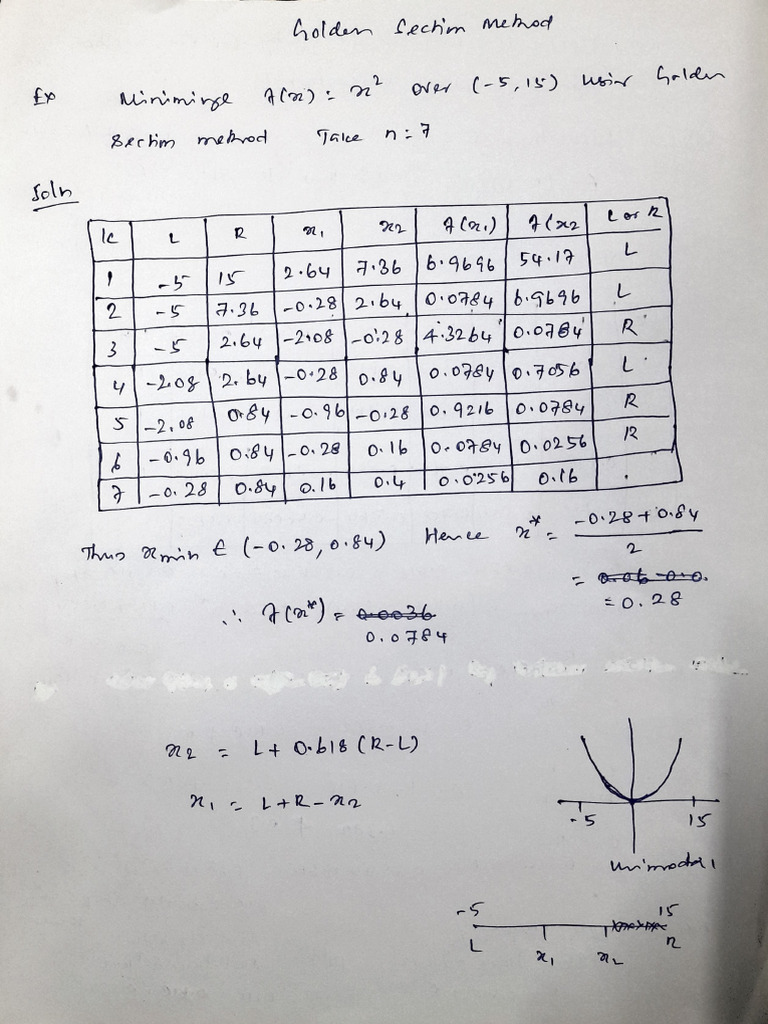 Golden Section Method
Ex Minimize f(x) = x² over (-5, 15) using Golden
Section method Take n = 7
Soln
k L R x₁ x₂ f(x₁) f(x₂ L or R
1 -5 15 2.64 7.36 6.9696 54.17 L
2 -5 7.36 -0.28 2.64 0.0784 6.9696 L
3 -5 2.64 -2.08 -0.28 4.3264 0.0784 R
4 -2.08 2.64 -0.28 0.84 0.0784 0.7056 L
5 -2.08 0.84 -0.96 -0.28 0.9216 0.0784 R
6 -0.96 0.84 -0.28 0.16 0.0784 0.0256 R
7 -0.28 0.84 0.16 0.4 0.0256 0.16 .
Thus xmin ∈ (-0.28, 0.84) Hence x* = -0.28 + 0.84
2
= 0.28
∴ f(x*) = 0.0036
0.0784
x₂ = L + 0.618 (R-L)
x₁ = L + R - x₂
-5 15
Unimodal
-5 15
L x₁ x₂ R